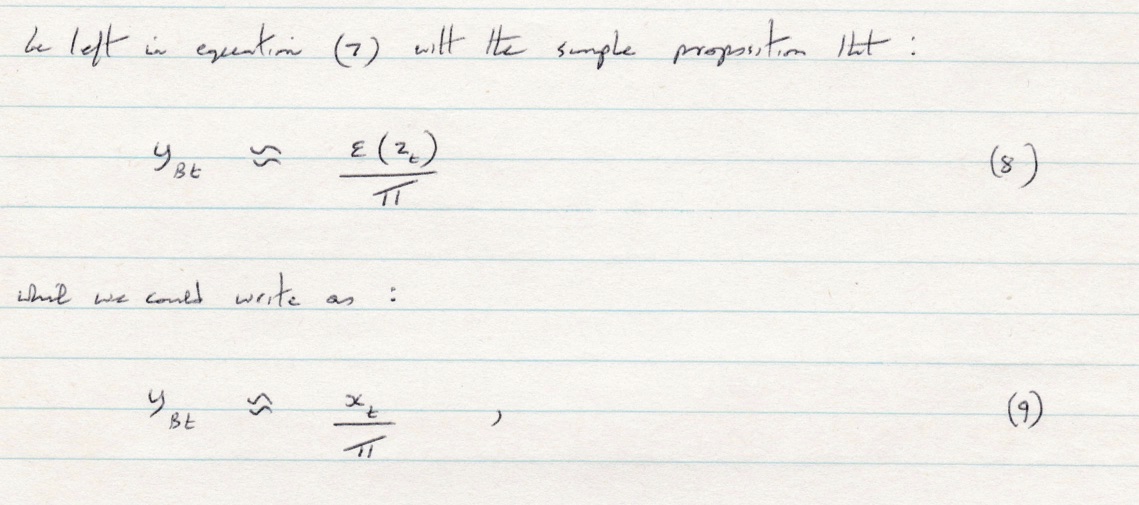 be left in equation (7) with the simple proposition that :
y_Bt ≈ ε(z_t) / π (8)
which we could write as :
y_Bt ≈ x_t / π , (9)